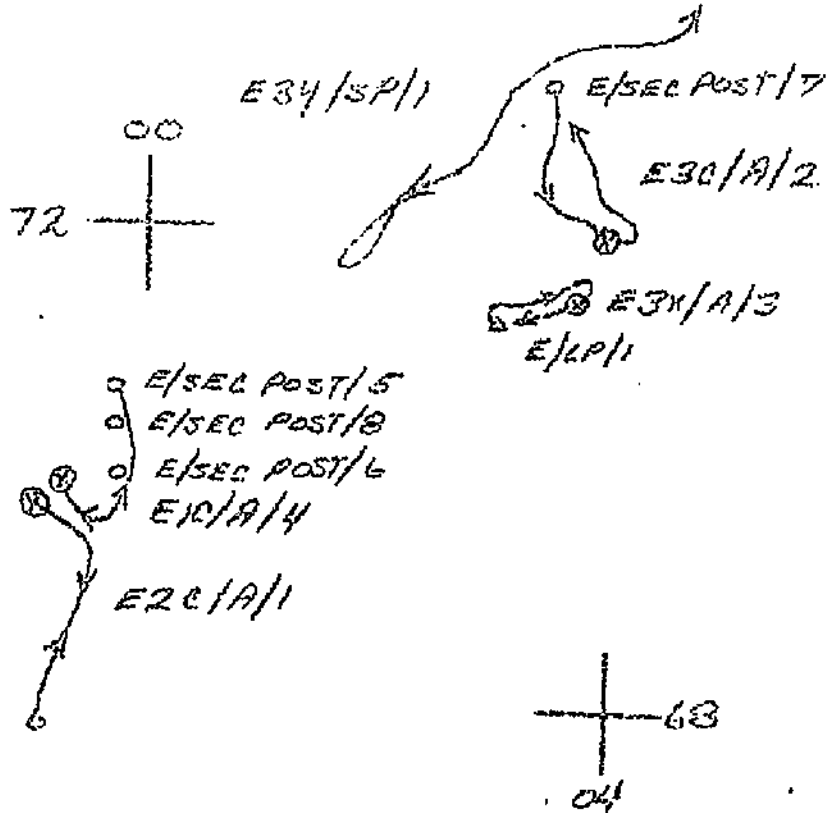 E34/SP/1
E/SEC POST/7
00
E3C/A/2
72
E3K/A/3
E/LP/1
E/SEC POST/5
E/SEC POST/8
E/SEC POST/6
E1C/A/4
E2C/A/1
68
04